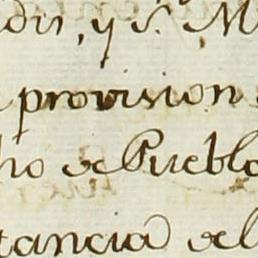 y S. M
provision
ho de Pueblo
tancia del